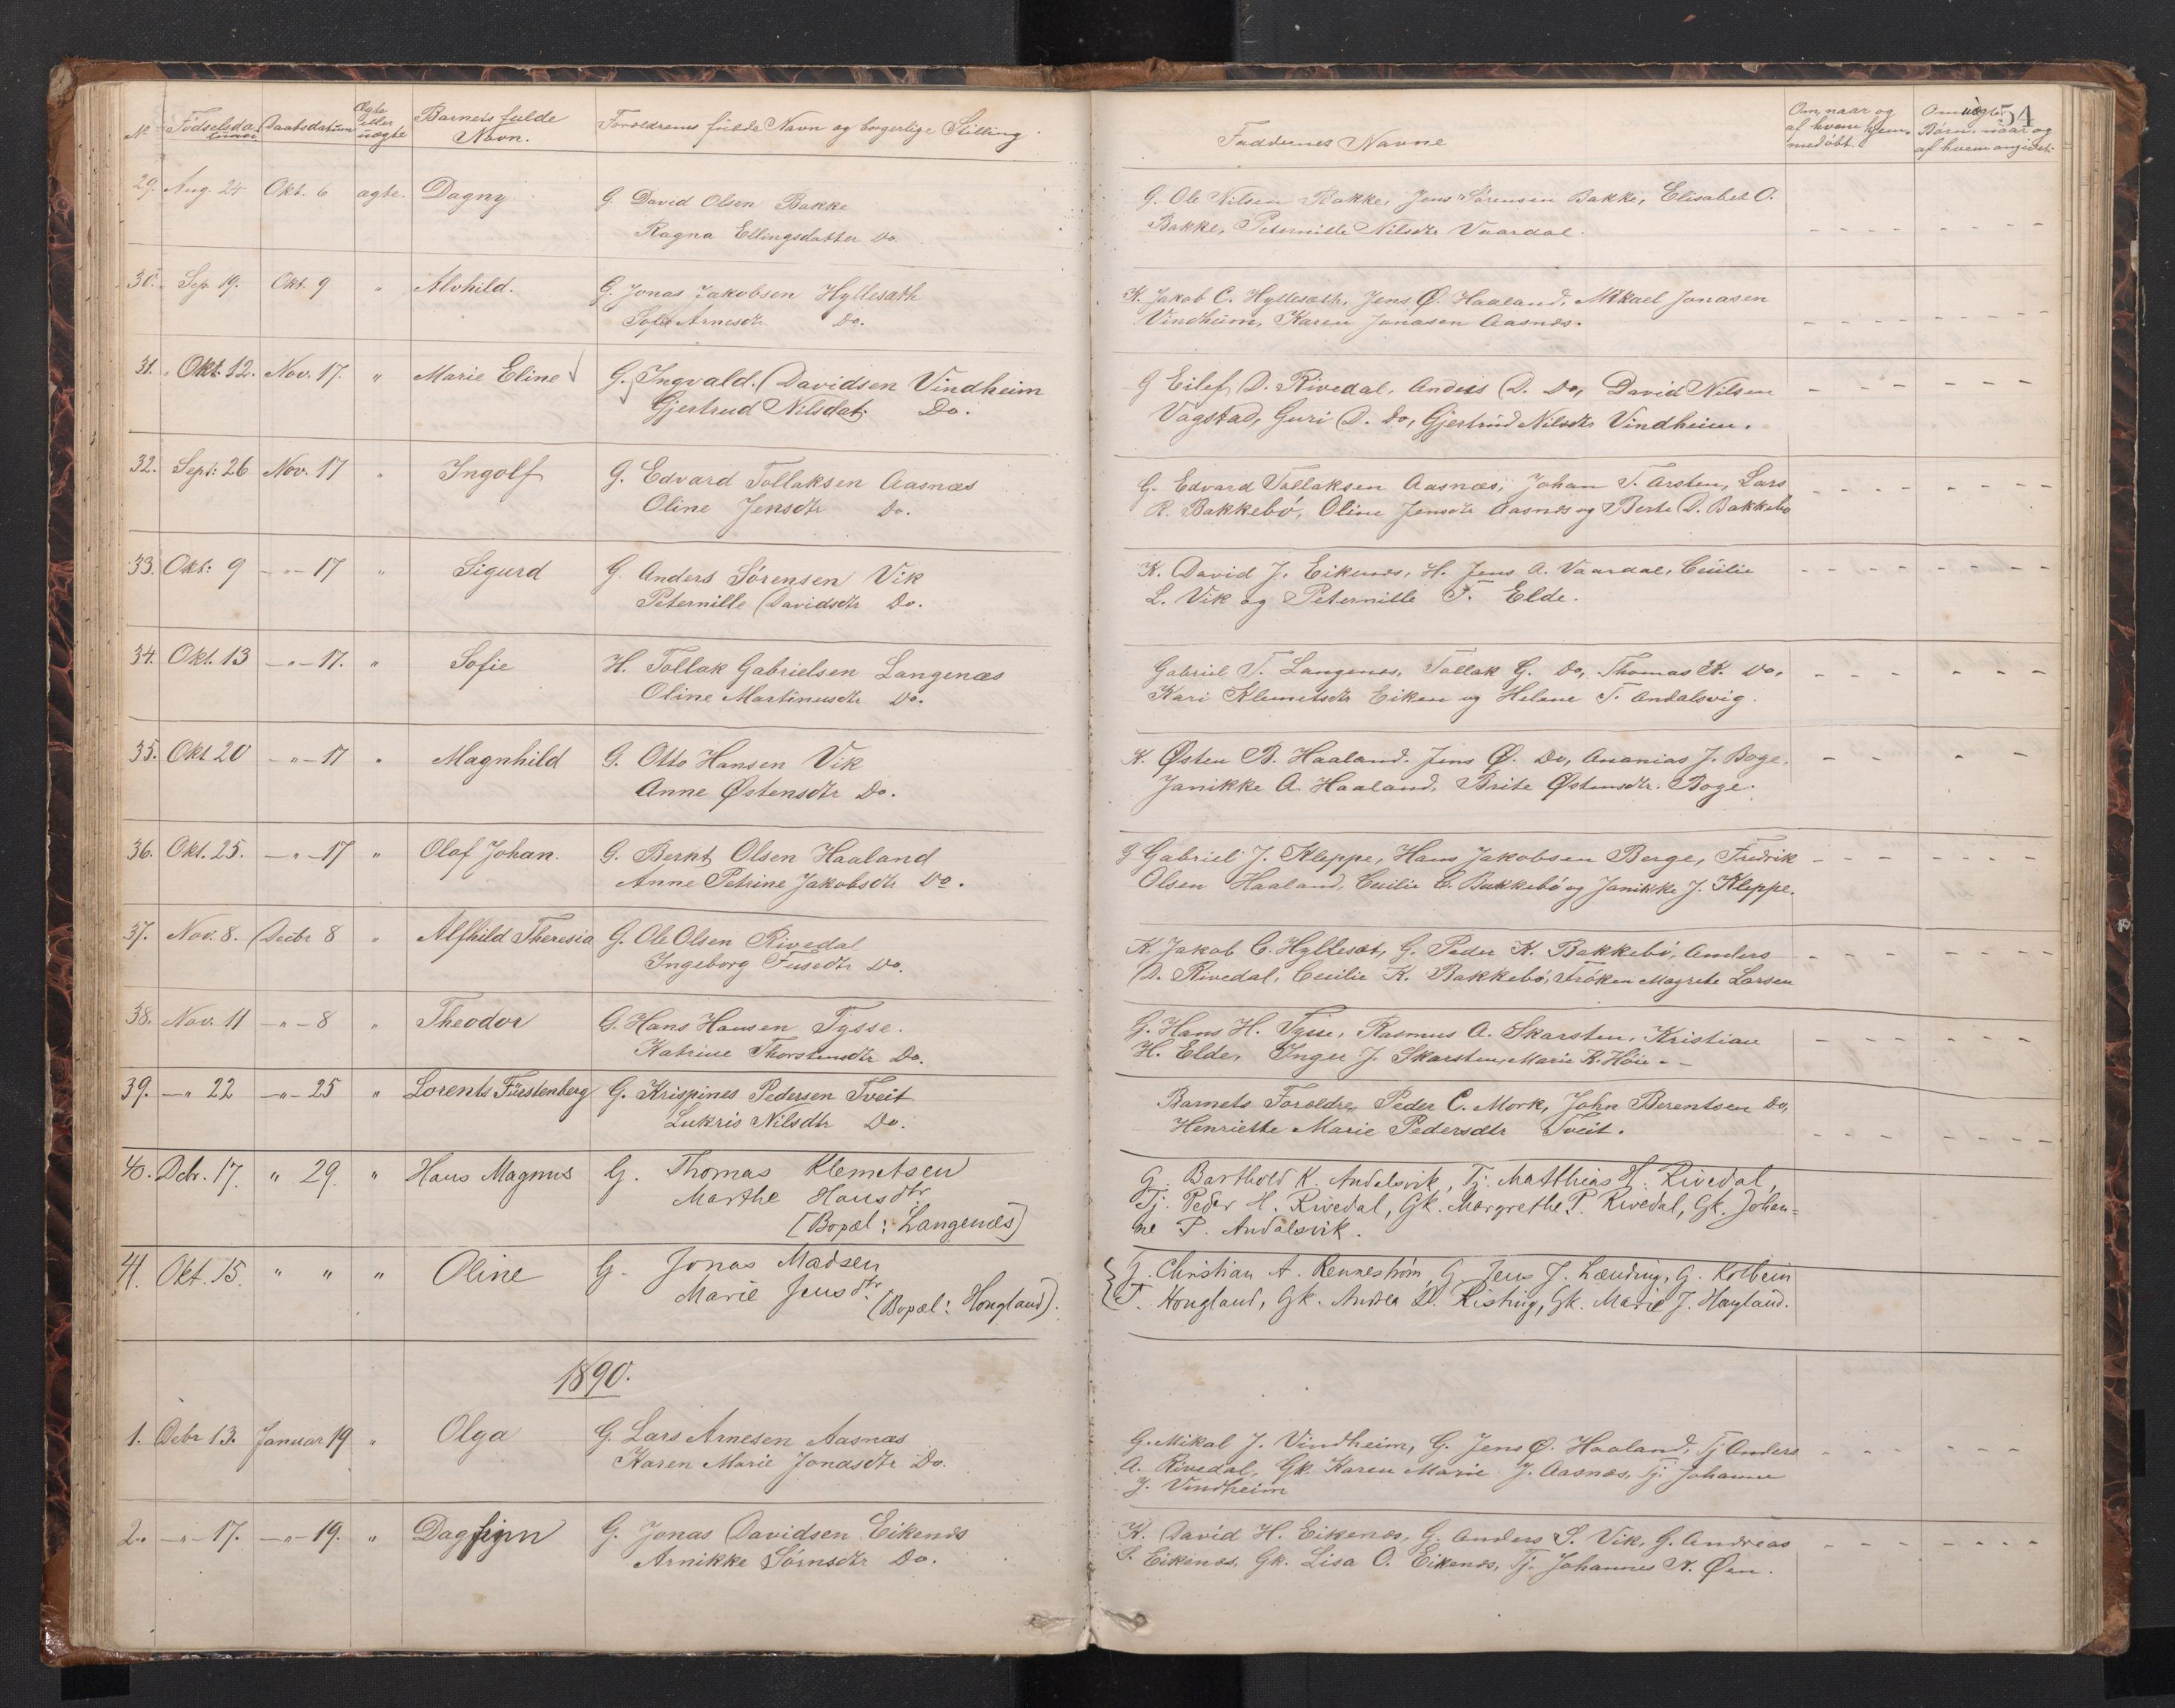 No Fødselsdatum Daabsdatum Ægte eller uægte Barnets fulde Navn. Forældrenes fulde Navn og borgerlige Stilling.
29. Aug. 24 Okt. 6 ægte. Dagny G. David Olsen Bakke
Ragna Ellingsdatter Do.
30. Sep. 19. Okt. 9 " Alvhild. G. Jonas Jakobsen Hyllesæth
Arnesdtr Do.
31. Okt. 12. Nov. 17. " Marie Eline G. Ingvald Davidsen Vindheim
Gjertrud Nilsdat. Do.
32. Sept: 26 Nov. 17 " Ingolf G. Edvard Tollaksen Aasnæs
Oline Jensdtr Do.
33. Okt: 9 -"- 17 " Sigurd G. Anders Sørensen Vik
Peternille Davidsdtr Do.
34. Okt. 13 -"- 17. " Sofie H. Tollak Gabrielsen Langenæs
Oline Martinusdtr Do.
35. Okt 20 -"- 17 " Magnhild G. Otto Hansen Vik
Anne Østensdtr Do.
36. Okt. 25. -"- 17 " Olaf Johan. G. Bernt Olsen Haaland
Anne Petrine Jakobsdtr Do.
37. Nov. 8. Decbr 8 " Alfhild Theresia G. Ole Olsen Rivedal
Ingeborg Do.
38. Nov. 11 -"- 8 " Theodor G. Hans Hansen Tysse.
Katrine Thorstensdtr Do.
39. -"- 22 -"- 25 " Lorents Fürstenberg G. Krispines Pedersen Tveit
Lukris Nilsdtr Do.
40. Dcbr. 17. " 29. " Hans Magnus G. Thomas Klemetsen
Marthe Hansdtr
[Bopæl: Langenæs]
41. Okt. 15. " " " Oline G. Jonas Madsen
Marie Jensdtr
(Bopæl: Hougland).
1890.
1. Debr 13. Januar 19 " Olga G. Lars Arnesen Aasnæs
Karen Marie Jonasdtr Do.
2. -"- 17. -"- 19. " Dagfinn G. Jonas Davidsen Eikenæs
Arnikke Sørnsdtr Do.
54
Faddernes Navne Om, naar og af hvem hjemmedøbt. Om uægte Børn, naar og af hvem angivet.
G. Ole Nilsen Bakke, Jens Sørensen Bakke, Elisabet O.
Bakke, Peternille Nilsdtr Vaardal.
K. Jakob C. Hyllesæth, Jens Ø. Haaland, Mikael Jonasen
Vindheim, Karen Jonasen Aasnæs.
G Eilef D. Rivedal, Anders D. Do, David Nilsen
Vagstad, Guri D. Do, Gjertrud Nilsdtr Vindheim.
G. Edvard Tollaksen Aasnæs, Johan T. Arsten, Lars
R. Bakkebø, Oline Jensdtr Aasnæs og Berte D. Bakkebø
K. David J. Eikenæs, H. Jens A. Vaardal, Cecilie
L. Vik og Peternille T. Elde.
Gabriel T. Langenæs, Tollak G. Do, Thomas K. Do,
Kari Klemetsdtr Eiken og Helene T. Andalsvig.
K. Østen B. Haaland, Jens Ø. Do, Ananias J. Boge,
Janikke A. Haaland, Brite Østensdtr. Boge.
G Gabriel J. Kleppe, Hans Jakobsen Berge, Fredrik
Olsen Haaland, Cecilie C. Bakkebø og Janikke J. Kleppe.
K. Jakob C. Hyllesæt, G. Peder K. Bakkebø, Anders
D. Rivedal, Cecilie K. Bakkebø, Frøken Magrete Larsen
G. Hans H. Tysse, Rasmus A. Skarsten, Kristian
H. Elde, Inger J. Skarsten, Marie K.
Barnets Foreldre, Peder C. Mork, John Berentsen Do,
Henriette Marie Pedersdtr Tveit.
G. Barthold K. Andalsvik, Tj. Matthias H. Rivedal,
Tj. Peder H. Rivedal, Gk. Margrethe P. Rivedal, Gk. Johan=
ne P. Andalsvik.
G. Christian A. Rennestrøm, G. Jens J. G. Kolbein
T. Hougland, Gk. Andrea D. Risting, Gk. Marie J. Hougland.
G. Mikal J. Vindheim, G. Jens Ø. Haaland, Tj Anders
A. Rivedal, Gk. Karen Marie J. Aasnæs, Tj. Johanne
J. Vindheim
K. David H. Eikenæs, G. Anders S. Vik, G. Andreas
S. Eikenæs, Gk. Lisa O. Eikenæs, Tj. Johannes N. Øen.